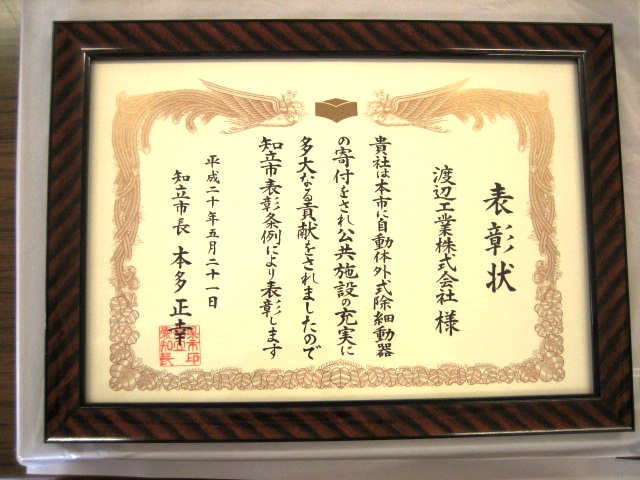 表彰状
渡辺工業株式会社 様
貴社は本市に自動体外式除細動器
の寄付をされ公共施設の充実に
多大なる貢献をされましたので
知立市表彰条例により表彰します
平成二十年五月二十一日
知立市長 本多正幸